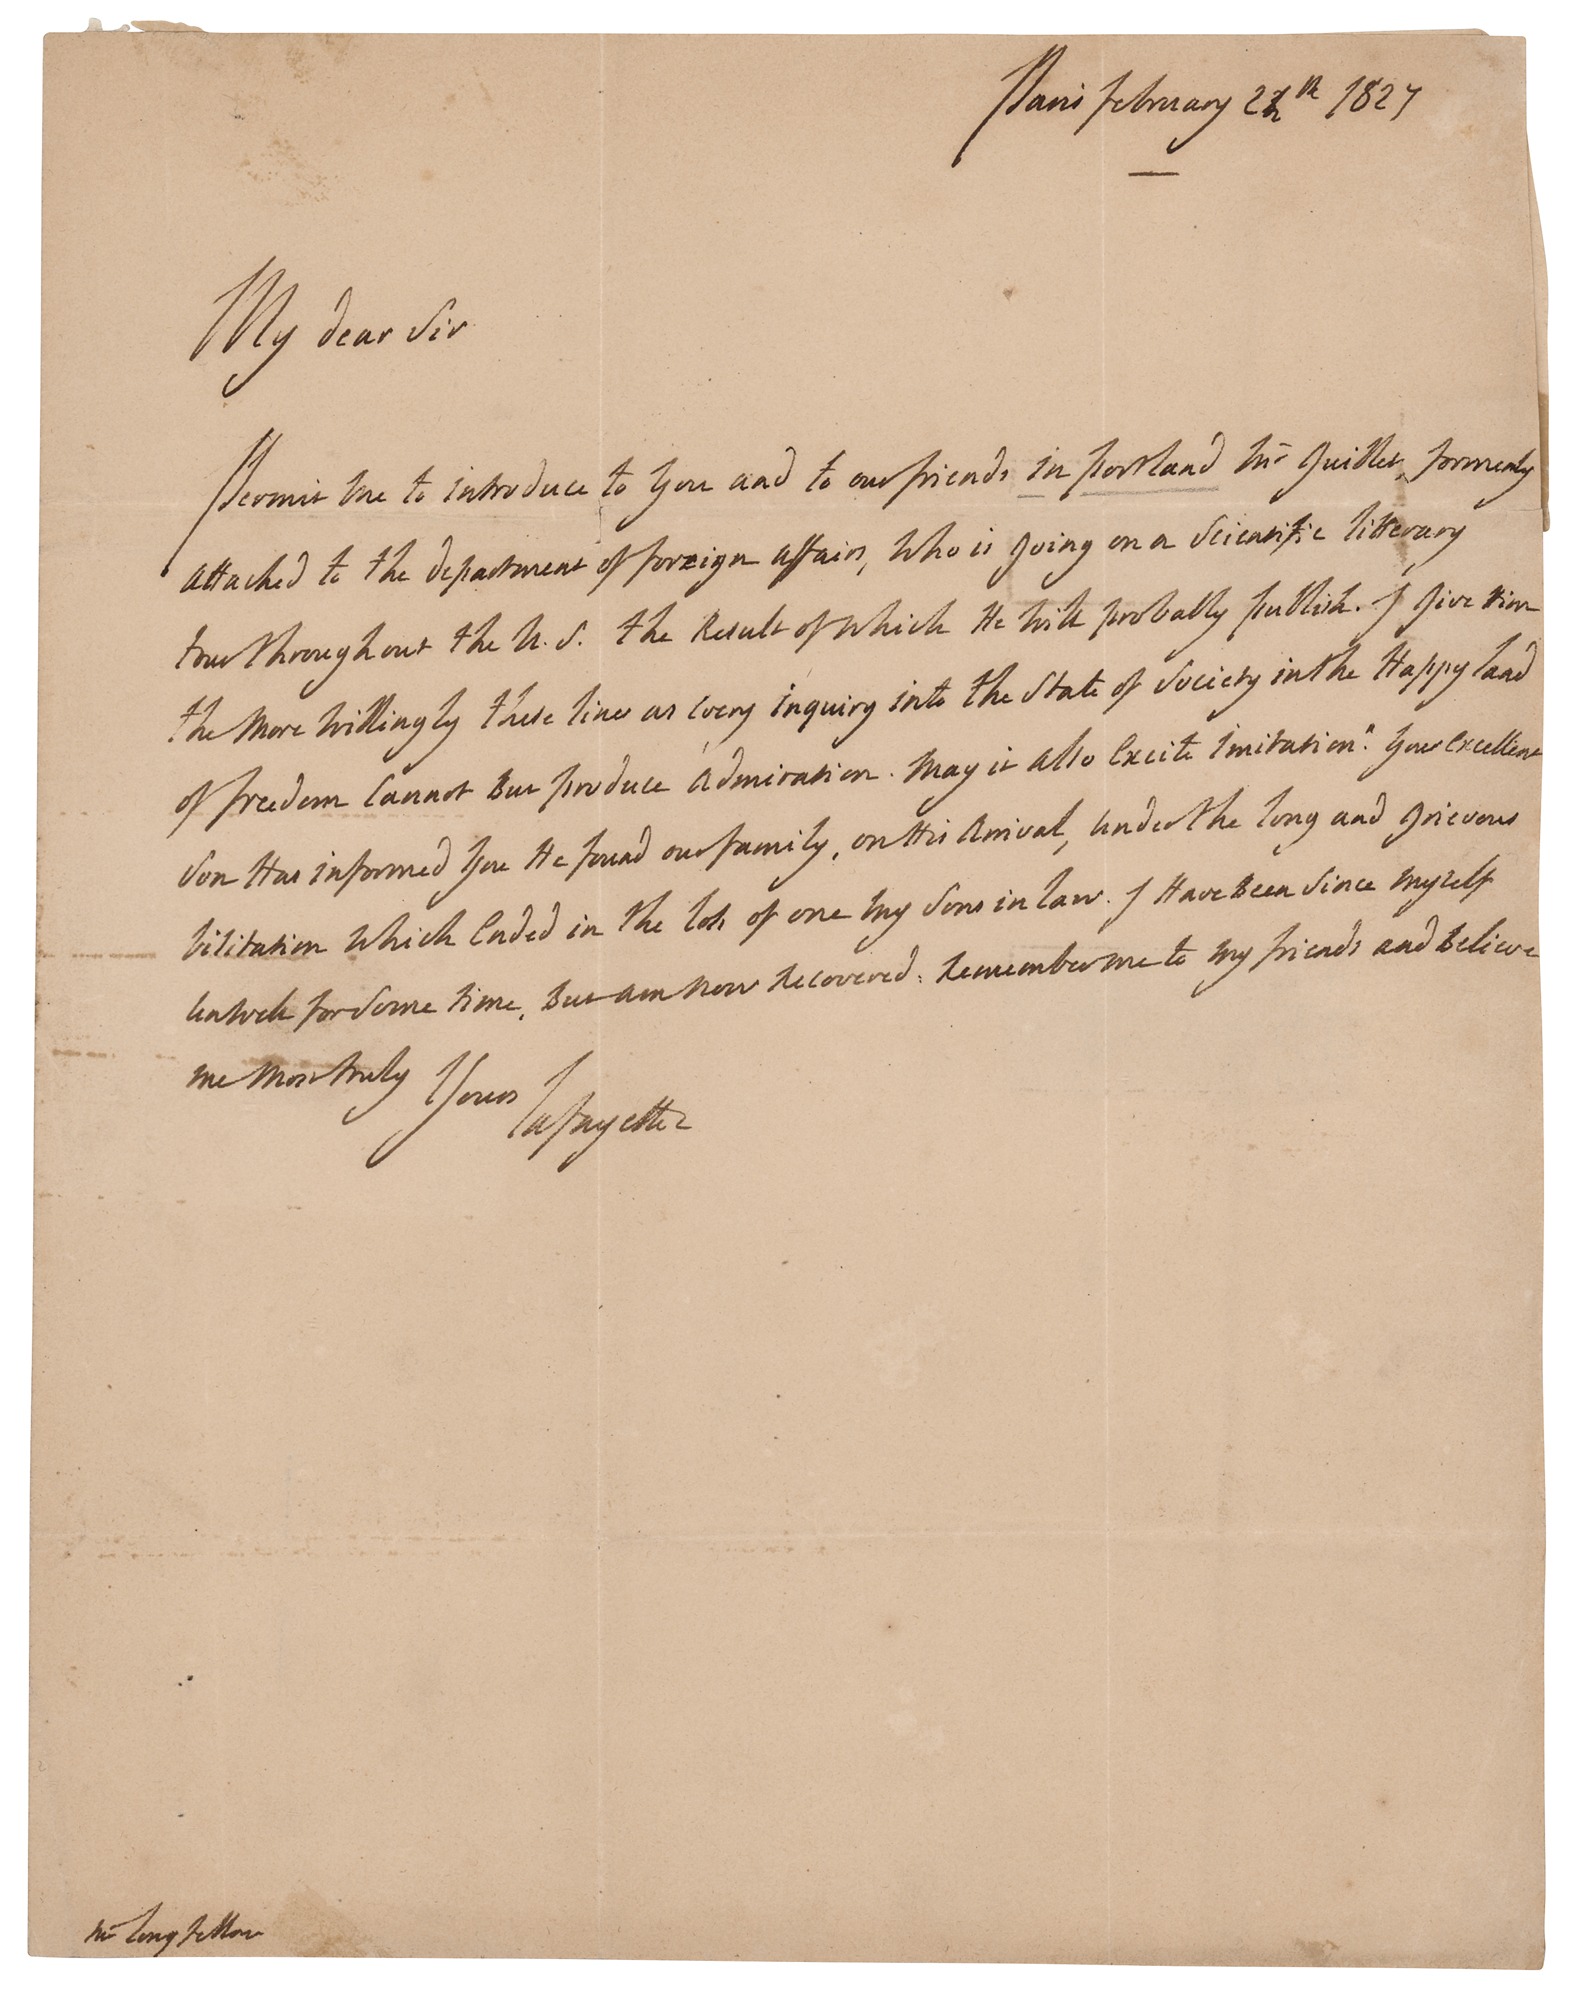 Paris february 22th 1827
My dear Sir
Permit me to introduce to You and to our friends in portland Mr Guillet, formerly
attached to the department of foreign affairs, Who is going on a Scientific litterary
tour throughout the U. S. the Result of which He will probably publish. I give Him
the More willingly these lines as every inquiry into the State of Society in the Happy land
of freedom Cannot But produce Admiration. May it also excite imitation. Your excellent
Son Has informed You He found our family, on His Arrival, under the long and grievous
visitation which ended in the loss of one my Sons in law. I Have Been Since Myself
unwell for Some time, But am now Recovered. Remember me to my friends and Believe
me Most truly Yours
Lafayette
Mr Longfellow